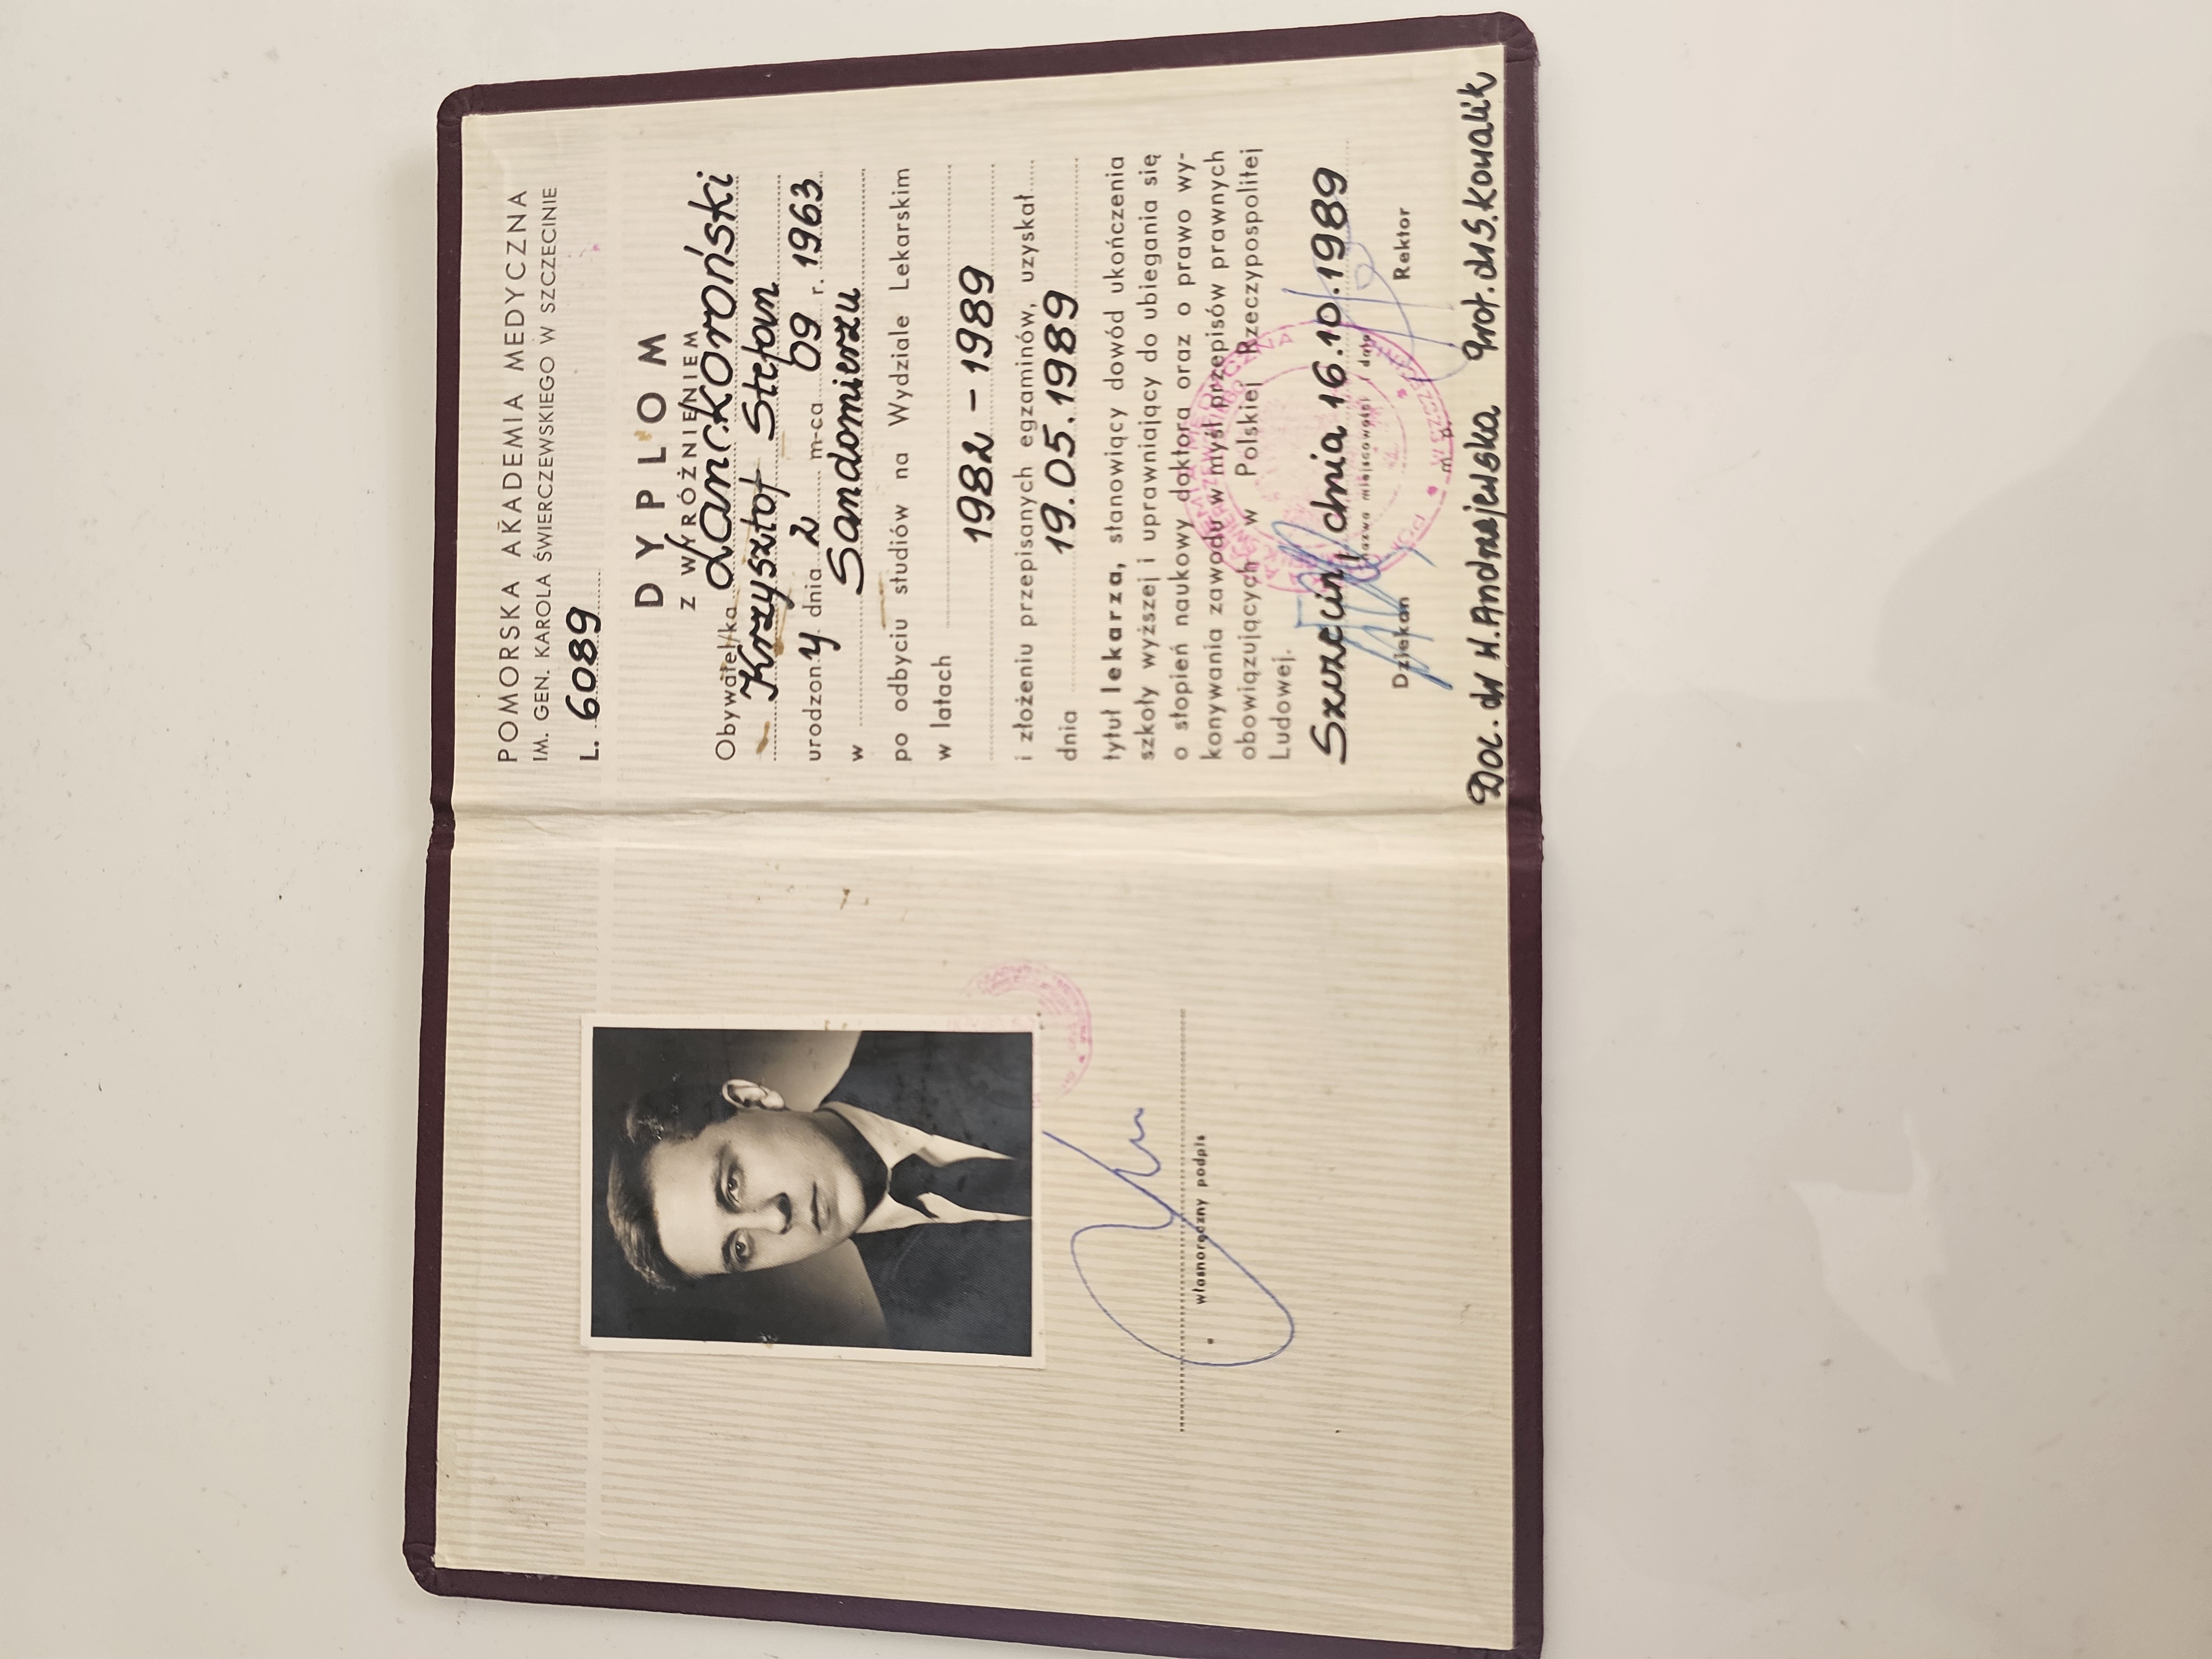 POMORSKA AKADEMIA MEDYCZNA
IM. GEN. KAROLA ŚWIERCZEWSKIEGO W SZCZECINIE
L. 6089
DYPLOM
Z WYRÓŻNIENIEM
Obywatel/ka Lanckoroński
Krzysztof Stefan
urodzony dnia 2 m-ca 09 r. 1963
w Sandomierzu
po odbyciu studiów na Wydziale Lekarskim
w latach
1982 - 1989
i złożeniu przepisanych egzaminów, uzyskał
dnia 19.05.1989
tytuł lekarza, stanowiący dowód ukończenia
szkoły wyższej i uprawniający do ubiegania się
o stopień naukowy doktora oraz o prawo wy-
konywania zawodu w myśl przepisów prawnych
obowiązujących w Polskiej Rzeczypospolitej
Ludowej.
Szczecin, dnia 16.10.1989
nazwa miejscowości i data
Dziekan m. p. Rektor
Doc. dr H. Andrzejewska Prof. dr S. Kowalik
własnoręczny podpis